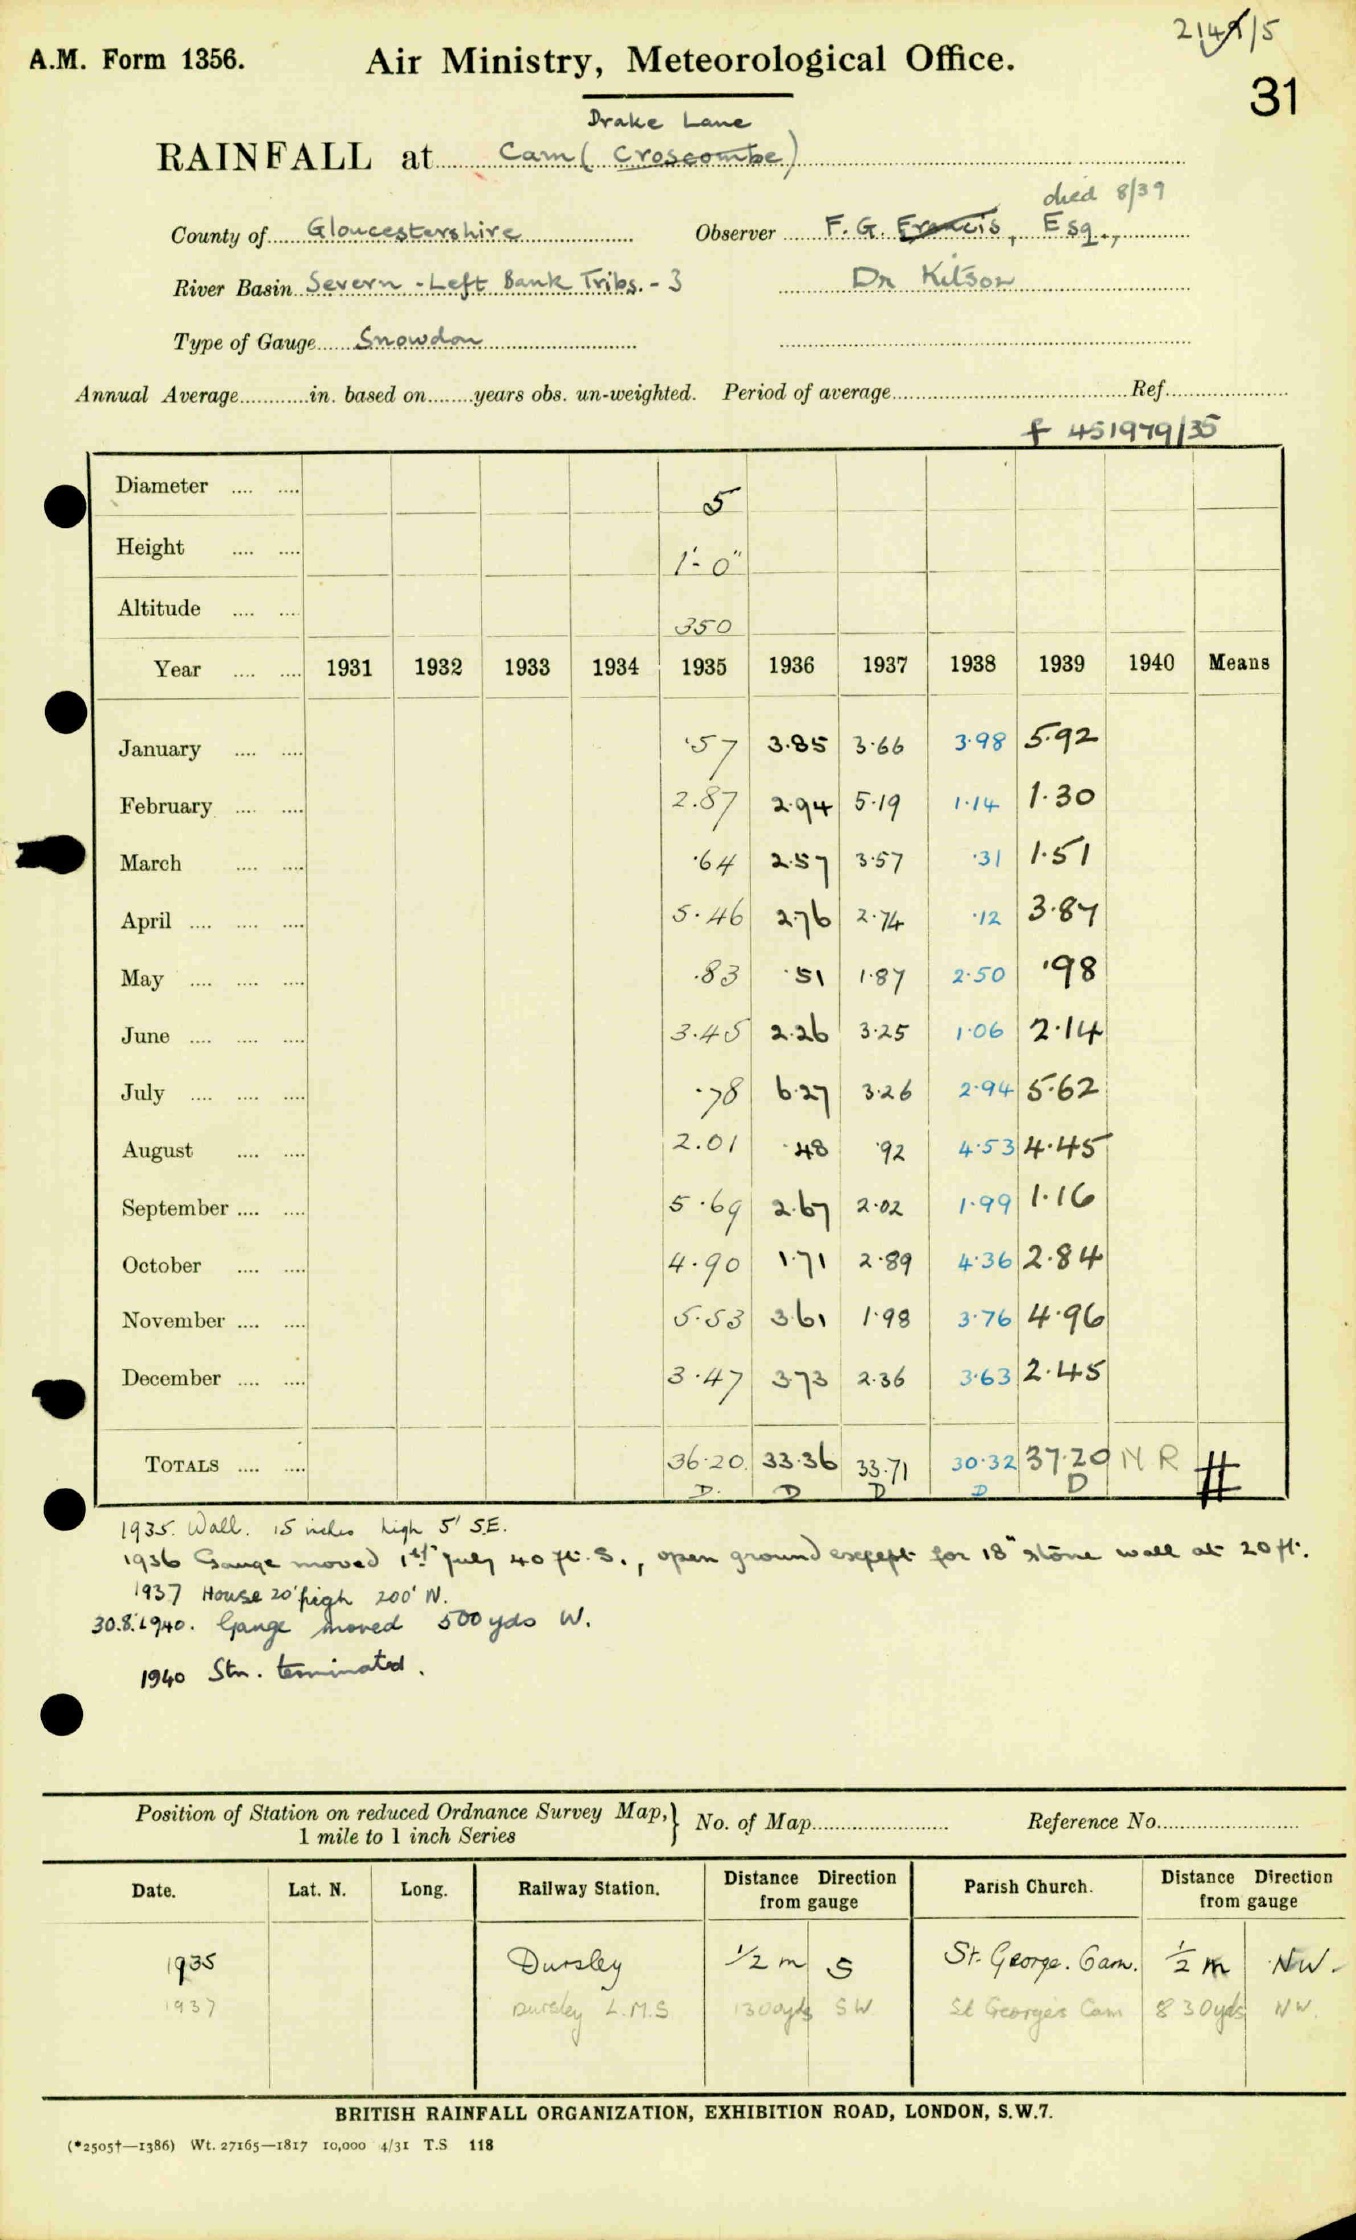 2141/5
A.M. Form 1356. Air Ministry, Meteorological Office.
31
Drake Lane
RAINFALL at Cam (Croscombe)
died 8/39
County of Gloucestershire Observer F. G. Francis, Esq.,
River Basin Severn - Left Bank Tribs. - 3 Dr Kitson
Type of Gauge Snowdon
Annual Average in. based on years obs. un-weighted. Period of average Ref.
f 451979/35
Diameter 5
Height 1'- 0"
Altitude 350
Year 1931 1932 1933 1934 1935 1936 1937 1938 1939 1940 Means
January ·57 3.85 3·66 3·98 5·92
February 2.87 2.94 5·19 1·14 1·30
March ·64 2.57 3·57 ·31 1·51
April 5·46 2.76 2·74 ·12 3·87
May ·83 ·51 1·87 2·50 ·98
June 3·45 2.26 3·25 1·06 2·14
July ·78 6·27 3·26 2·94 5·62
August 2.01 ·48 ·92 4·53 4·45
September 5·69 2.67 2·02 1·99 1·16
October 4·90 1·71 2·89 4·36 2·84
November 5·53 3.61 1·98 3·76 4·96
December 3·47 3.73 2·36 3·63 2·45
TOTALS 36·20 33·36 33·71 30·32 37·20 N R #
D. D D D D
1935. Wall. 15 inches high 5' S.E.
1936 Gauge moved 1st July 40 ft. S., open ground except for 18" stone wall at 20 ft.
1937 House 20' high 200' N.
30.8.1940. Gauge moved 500 yds W.
1940 Stn. terminated.
Position of Station on reduced Ordnance Survey Map, } No. of Map Reference No.
1 mile to 1 inch Series
Date. Lat. N. Long. Railway Station. Distance Direction from gauge Parish Church. Distance Direction from gauge
1935 Dursley 1/2 m S St. George. Cam. 1/2 m NW.
1937 Dursley L.M.S 1300yds SW St George's Cam 830yds NW.
BRITISH RAINFALL ORGANIZATION, EXHIBITION ROAD, LONDON, S.W.7.
(*2505†—1386) Wt. 27165—1817 10,000 4/31 T.S 118